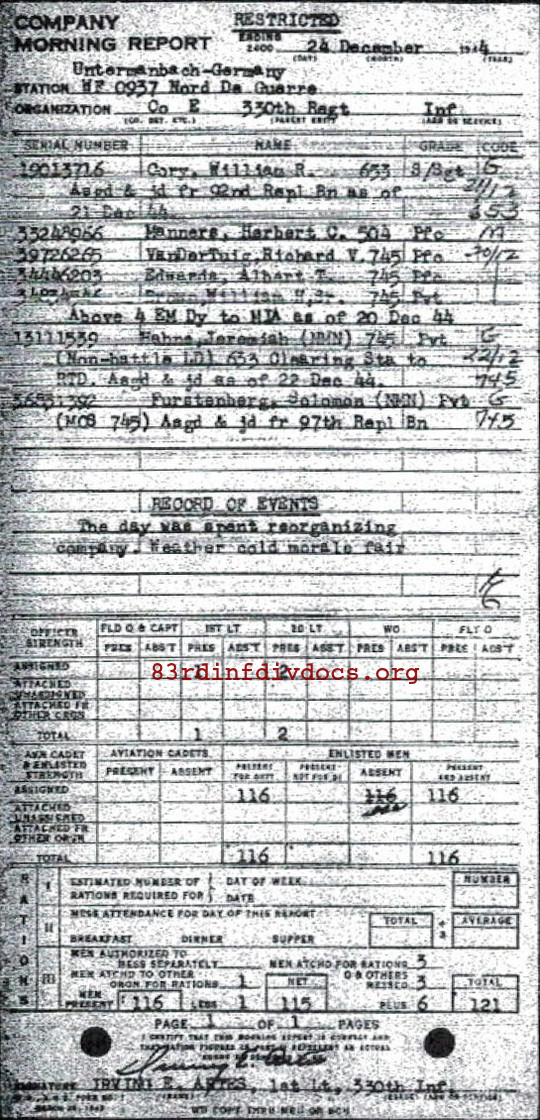 COMPANY RESTRICTED
MORNING REPORT ENDING 2400 24 December 1944
(DAY) (MONTH) (YEAR)
Untermanbach-Germany
STATION WF 0937 Nord De Guerre
ORGANIZATION Co E 330th Regt Inf
(CO. DET. ETC.) (PARENT UNIT) (ARM OR SERVICE)
SERIAL NUMBER NAME GRADE CODE
19013716 Cory, William R. 653 S/Sgt G
Asgd & jd fr 92nd Repl Bn as of 21/12
21 Dec 44. 653
33248966 Manners, Herbert C. 504 Pfc M
39726265 VanDerTuig, Richard V. 745 Pfc 20/12
34446203 Edwards, Albert T. 745 Pfc
Brown, William 745 Pvt
Above 4 EM Dy to MIA as of 20 Dec 44
13111539 Hahne, Jeremiah (NMN) 745 Pvt G
(Non-battle LD) 633 Clearing Sta to 22/12
RTD. Asgd & jd as of 22 Dec 44. 745
Furstenberg, Solomon (NMN) Pvt G
(MOS 745) Asgd & jd fr 97th Repl Bn 745
RECORD OF EVENTS
The day was spent reorganizing
company. Weather cold morale fair
OFFICER STRENGTH FLD O & CAPT 1ST LT 2D LT WO FLT O
PRES ABS'T PRES ABS'T PRES ABS'T PRES ABS'T PRES ABS'T
ASSIGNED 1 2
83rdinfdivdocs.org
ATTACHED UNASSIGNED
ATTACHED FR OTHER ORGN
TOTAL 1 2
AVN CADET & ENLISTED STRENGTH AVIATION CADETS ENLISTED MEN
PRESENT ABSENT PRESENT FOR DUTY PRESENT NOT FOR DY ABSENT PRESENT AND ABSENT
ASSIGNED 116 116 116
ATTACHED UNASSIGNED
ATTACHED FR OTHER ORGN
TOTAL 116 116
RATIONS
I ESTIMATED NUMBER OF DAY OF WEEK NUMBER
RATIONS REQUIRED FOR DATE
II MESS ATTENDANCE FOR DAY OF THIS REPORT TOTAL ÷ 3 AVERAGE
BREAKFAST DINNER SUPPER
III MEN AUTHORIZED TO MESS SEPARATELY MEN ATCHD FOR RATIONS 3
MEN ATCHD TO OTHER ORGN FOR RATIONS 1 NET O & OTHERS MESSED 3 TOTAL
MEN PRESENT 116 LESS 1 115 PLUS 6 121
PAGE 1 OF 1 PAGES
I CERTIFY THAT THIS MORNING REPORT IS CORRECT AND
SIGNATURE IRVING E. ARTES, 1st Lt, 330th Inf.